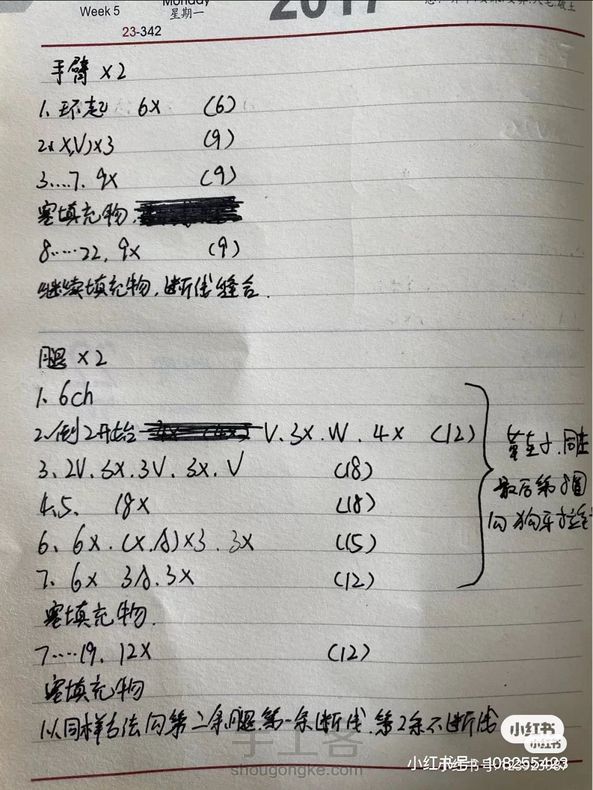 Week 5
Monday
星期一
2017
23-342
手臂 x2
1、环起 6x (6)
2、(x,V)x3 (9)
3....7、9x (9)
塞填充物,
8.....22, 9x (9)
继续填充物,断线缝合.
腿 x2
1、6ch
2、倒2开始 V、3x、W、4x (12)
3、2V、3x、3V、3x、V (18)
4、5、 18x (18)
6、6x、(x、A)x3、3x (15)
7、6x 3A、3x (12)
塞填充物.
7.....19、12x (12)
塞填充物
以同样方法勾第二条腿,第一条断线,第2条不断线
最后第8圈
手工客
shougongke.com
小红书
小红书
小红书号: